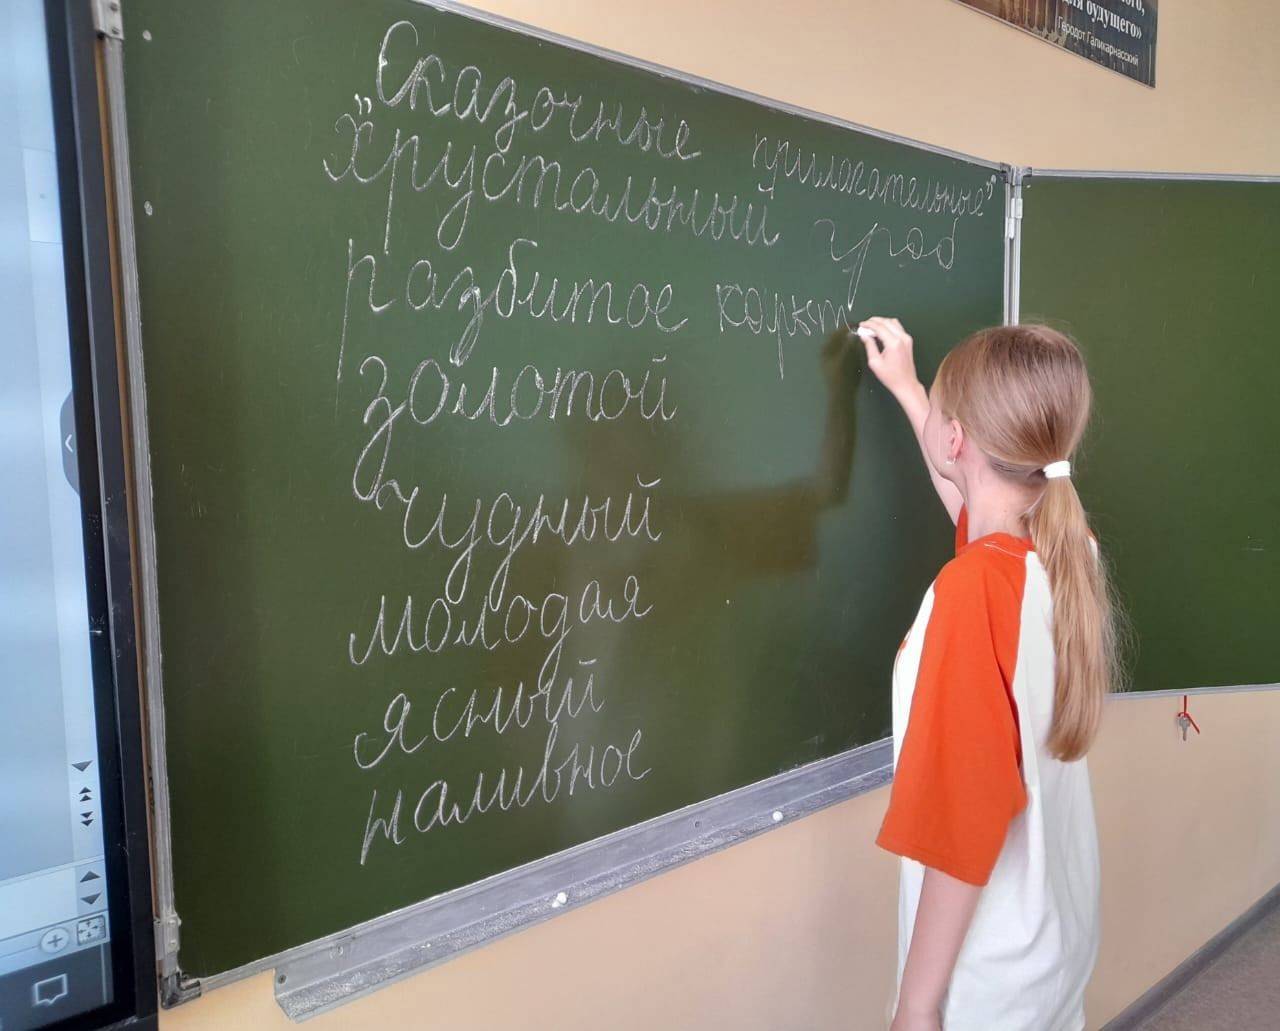 ого,
для будущего»
Геродот Галикарнасский
„Сказочные прилагательные”
хрустальный гроб
разбитое корыт
золотой
чудный
молодая
ясный
наливное